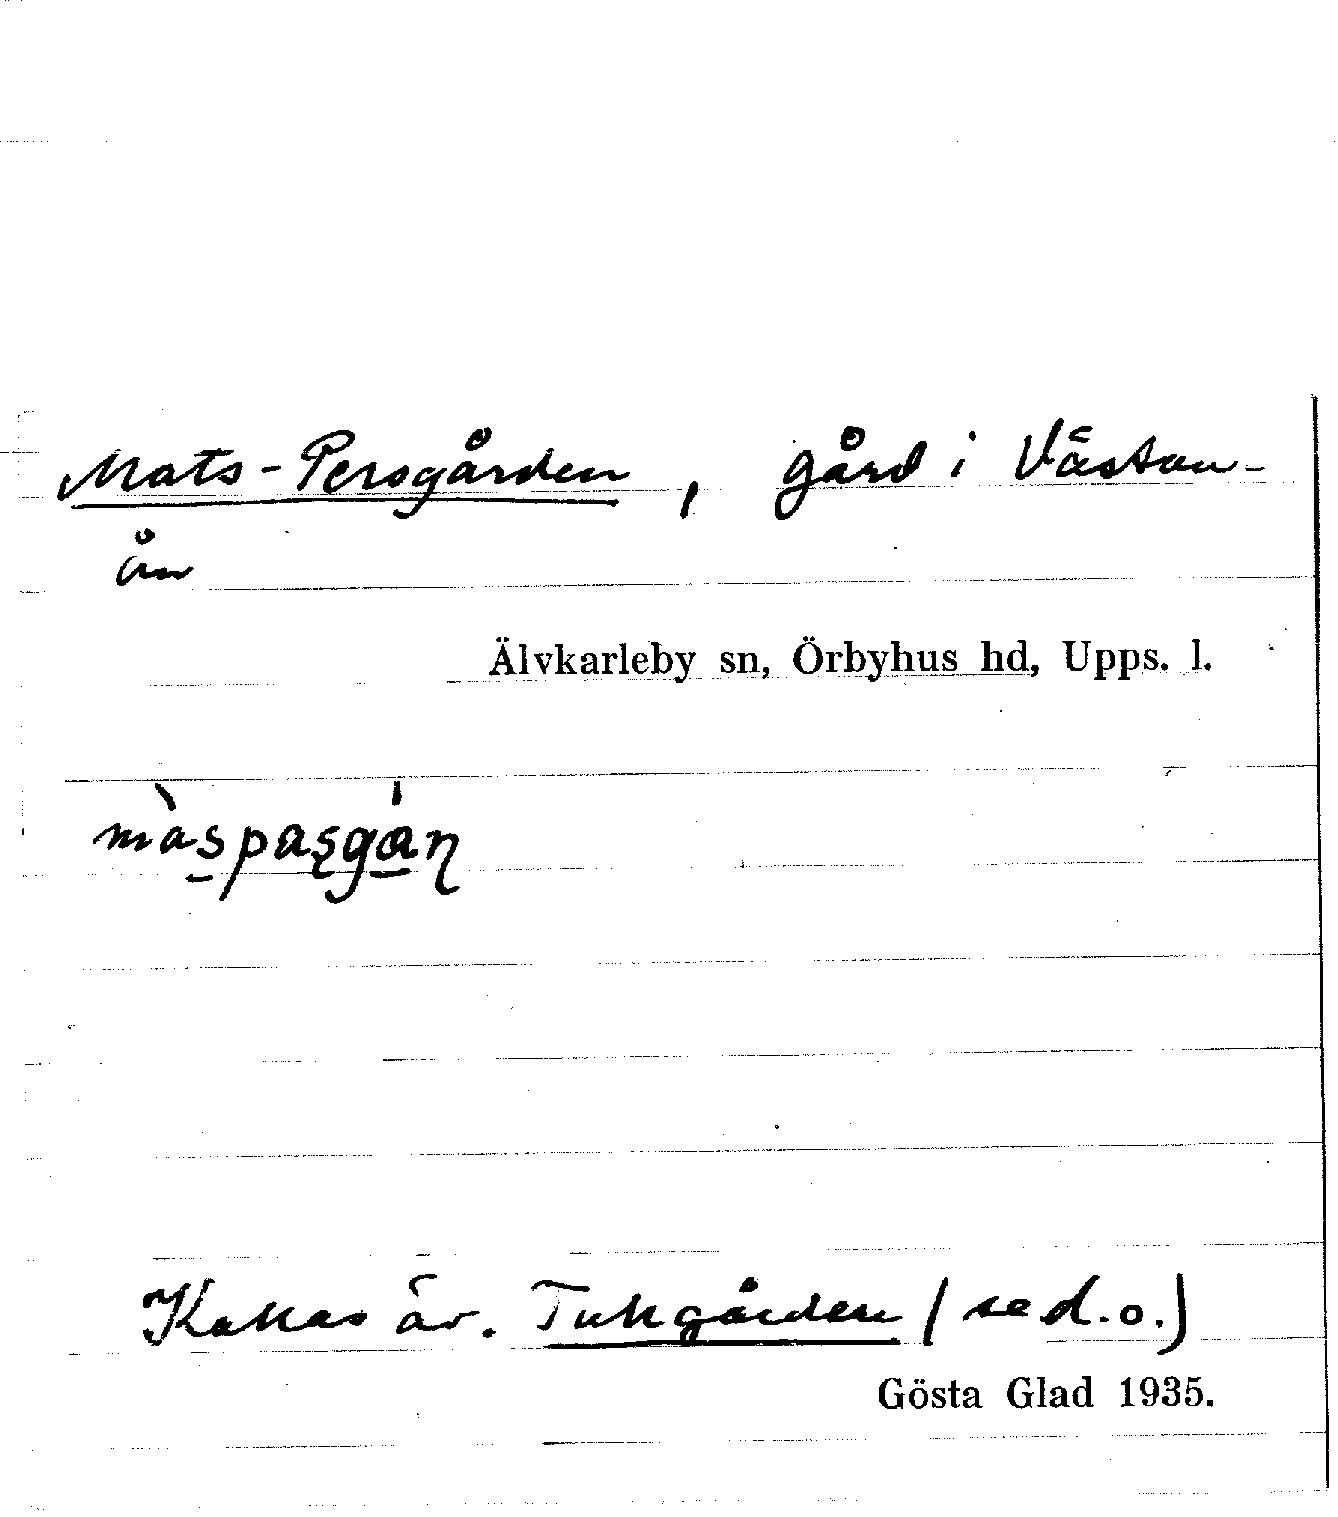 Mats-Persgården, gård i Västan-
ån
Älvkarleby sn, Örbyhus hd, Upps. l.
màspaʂgán
Kallas äv. Tukgården (se d.o.)
Gösta Glad 1935.